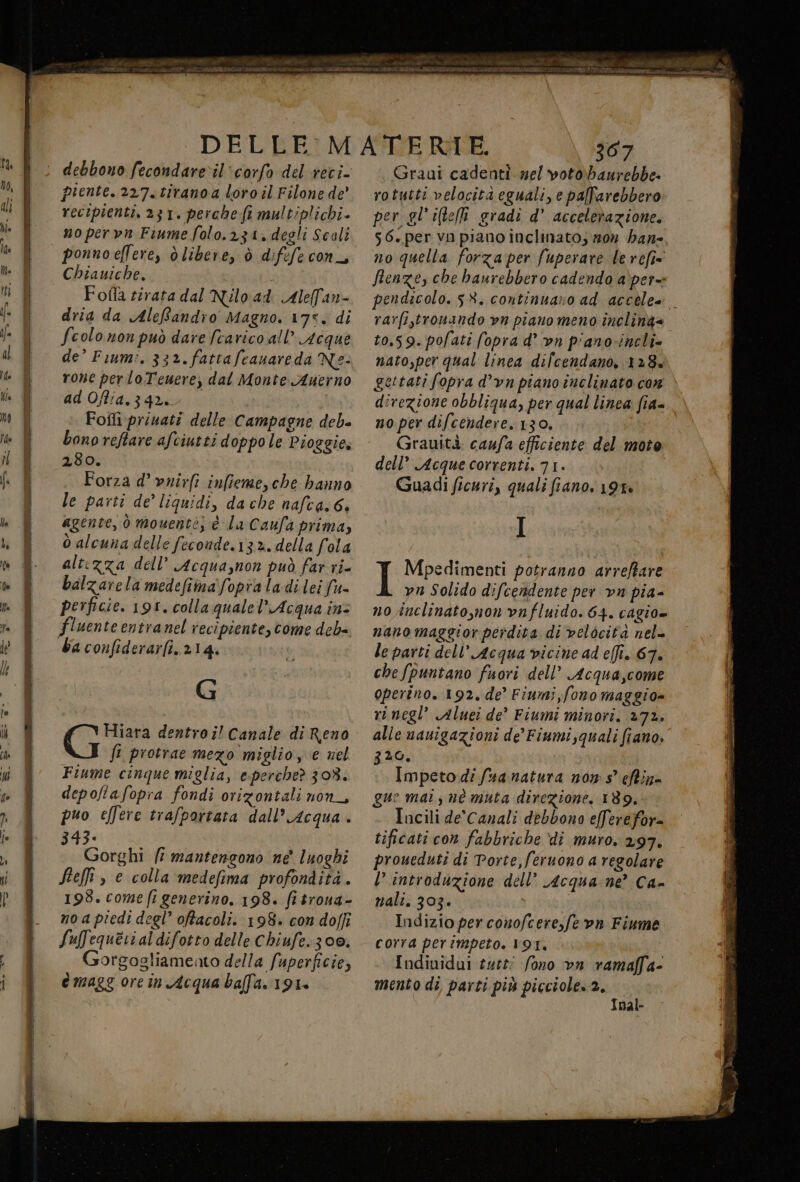 DELLE MATERIE. 367
debbono ſecondare il corſo del reci-
piente. 227. tirano a loro il Filone de'
recipienti. 231. perche ſi multiplichi-
no per vn Fiume ſolo. 231. degli Scoli
ponno eſſere, ò libere, ò difeſe con
Chiauiche.
Foſſa tirata dal Nilo ad Aleſſan-
dria da Aleßandro Magno. 175. di
ſcolo non può dare ſcarico all' Acque
de' Fiumi. 332. fatta ſcauare da Ne-
rone per lo Teuere, dal Monte Auerno
ad Oſtia. 342.
Foſſi priuati delle Campagne deb-
bono reſtare aſciutti doppo le Pioggie.
280.
Forza d' vnirſi inſieme, che hanno
le parti de' liquidi, da che naſca. 6.
agente, ò mouente, è la Cauſa prima,
ò alcuna delle ſeconde. 132. della ſola
altezza dell' Acqua, non può far ri-
balzare la medeſima ſopra la di lei ſu-
perficie. 191. colla quale l' Acqua in-
fluente entra nel recipiente, come deb-
ba conſiderarſi. 214.
G
GHiara dentro il Canale di Reno
ſi protrae mezo miglio, e nel
Fiume cinque miglia, e perche? 308.
depoſta ſopra fondi orizontali non
puo eſſere traſportata dall' Acqua.
343.
Gorghi ſi mantengono ne' luoghi
ſteſſi, e colla medeſima profondità.
198. come ſi generino. 198. ſi troua-
no a piedi degl' oſtacoli. 198. con doſſi
ſuſſequēti al diſotto delle Chiuſe. 300.
Gorgogliamento della ſuperficie,
è maggiore in Acqua baſſa. 191.
Graui cadenti nel voto haurebbe-
ro tutti velocità eguali, e paſſarebbero
per gl' iſteſſi gradi d' accelerazione.
56. per vn piano inclinato, non han-
no quella forza per ſuperare le reſi-
ſtenze, che haurebbero cadendo a per-
pendicolo. 58. continuano ad accele-
rarſi, trouando vn piano meno inclina-
to. 59. poſati ſopra d' vn piano incli-
nato, per qual linea diſcendano. 128.
gettati ſopra d' vn piano inclinato con
direzione obbliqua, per qual linea ſia-
no per diſcendere. 130.
Grauità cauſa efficiente del moto
dell' Acque correnti. 71.
Guadi ſicuri, quali ſiano. 191.
I
IMpedimenti potranno arreſtare
vn Solido diſcendente per vn pia-
no inclinato, non vn fluido. 64. cagio-
nano maggior perdita di velocità nel-
le parti dell' Acqua vicine ad eſſi. 67.
che ſpuntano fuori dell' Acqua, come
operino. 192. de' Fiumi, ſono maggio-
ri negl' Aluei de' Fiumi minori. 272.
alle nauigazioni de' Fiumi, quali ſiano.
320.
Impeto di ſua natura non s' eſtin-
gue mai, nè muta direzione. 189.
Incili de' Canali debbono eſſere for-
tificati con fabbriche di muro. 297.
proueduti di Porte, ſeruono a regolare
l' introduzione dell' Acqua ne' Ca-
nali. 303.
Indizio per conoſcere, ſe vn Fiume
corra per impeto. 191.
Indiuidui tutti ſono vn ramaſſa-
mento di parti più picciole. 2.
Inal-